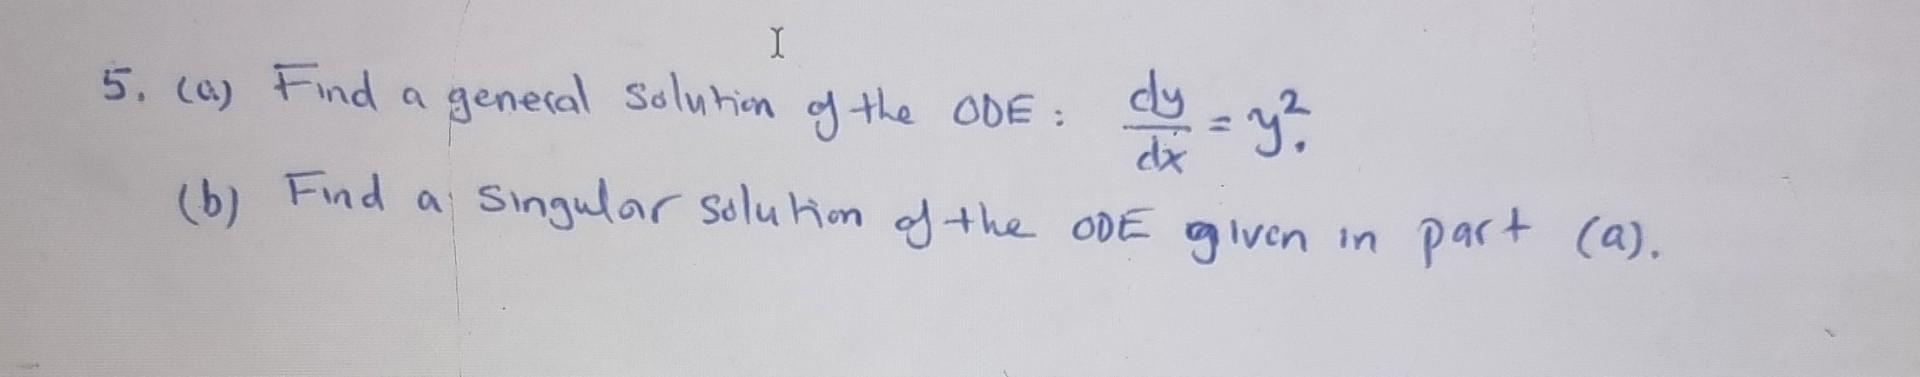 5. (a) Find a general solution of the ODE: dy/dx = y².
(b) Find a singular solution of the ODE given in part (a).